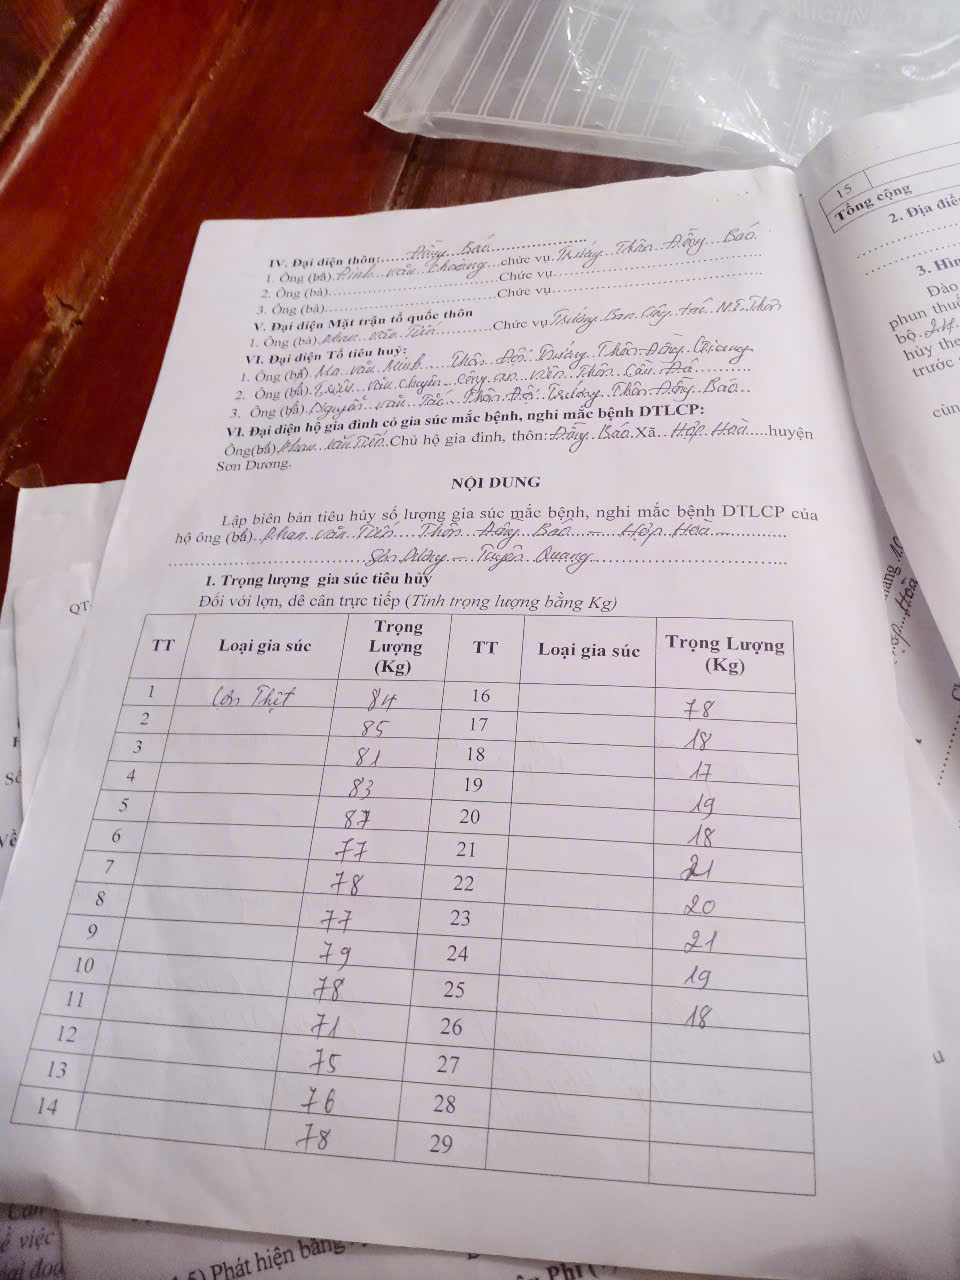 IV. Đại diện thôn:....Đồng Báo....................
1. Ông (bà) Đinh Văn Choàng...chức vụ.Trưởng Thôn Đồng Báo.
2. Ông (bà)..............................Chức vụ..............................
3. Ông (bà)..............................Chức vụ..............................
V. Đại diện Mặt trận tổ quốc thôn
1. Ông (bà) Phan Văn Tiến..........Chức vụ Trưởng Ban Công tác M.T Thôn
VI. Đại diện Tổ tiêu huỷ:
1. Ông (bà).Ma Văn Minh....Thôn Đội Trưởng Thôn Đồng Giang
2. Ông (bà).Triệu Văn Chuyên - Công an viên Thôn Cầu Đá..........
3. Ông (bà).Nguyễn Văn Tác - Thôn Đội Trưởng Thôn Đồng Báo..
VI. Đại diện hộ gia đình có gia súc mắc bệnh, nghi mắc bệnh DTLCP:
Ông(bà) Phan Văn Tiến.Chủ hộ gia đình, thôn: Đồng Báo.Xã..Hợp Hoà.....huyện
Sơn Dương.
NỘI DUNG
Lập biên bản tiêu hủy số lượng gia súc mắc bệnh, nghi mắc bệnh DTLCP của
hộ ông (bà)..Phan Văn Tiến....Thôn Đồng Báo - Hợp Hoà -
Sơn Dương - Tuyên Quang
1. Trọng lượng gia súc tiêu hủy
Đối với lợn, dê cân trực tiếp (Tính trọng lượng bằng Kg)
TT Loại gia súc Trọng Lượng (Kg) TT Loại gia súc Trọng Lượng (Kg)
1 Lợn Thịt 84 16 78
2 85 17 18
3 81 18 17
4 83 19 19
5 87 20 18
6 77 21 21
7 78 22 20
8 77 23 21
9 79 24 19
10 78 25 18
11 71 26
12 75 27
13 76 28
14 78 29
15
Tổng cộng
2. Địa
3. Hìn
Đào
phun
bộ.
hủy the
trước
cùn
QT
5) Phát hiện bằng